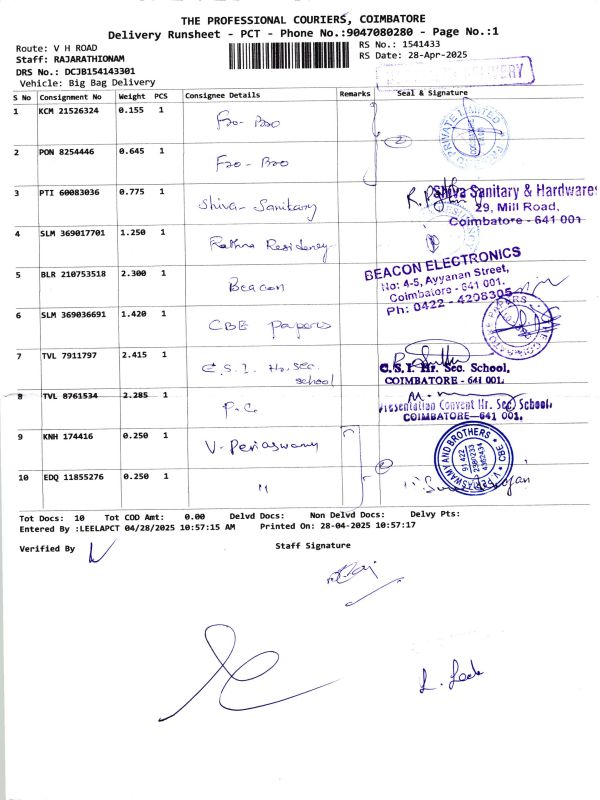 THE PROFESSIONAL COURIERS, COIMBATORE
Delivery Runsheet - PCT - Phone No.:9047080280 - Page No.:1
Route: V H ROAD
RS No.: 1541433
Staff: RAJARATHIONAM
RS Date: 28-Apr-2025
DRS No.: DCJB154143301
Vehicle: Big Bag Delivery
S No Consignment No Weight PCS Consignee Details Remarks Seal & Signature
1 KCM 21526324 0.155 1 Fro-Bro
2 PON 8254446 0.645 1 Fro-Bro
3 PTI 60083036 0.775 1 Shiva-Sanitary
Shiva Sanitary & Hardwares
29, Mill Road,
Coimbatore - 641 001
4 SLM 369017701 1.250 1 Rathna Residency
5 BLR 210753518 2.300 1 Beacon
BEACON ELECTRONICS
No: 4-5, Ayyanan Street,
Coimbatore - 641 001.
Ph: 0422 - 4208305
6 SLM 369036691 1.420 1 CBE Papers
7 TVL 7911797 2.415 1 C.S.I. Hr. Sec. School
C.S.I. Hr. Sec. School,
COIMBATORE - 641 001.
8 TVL 8761534 2.285 1 P.C
Presentation Convent Hr. Sec. School,
COIMBATORE-641 001.
9 KNH 174416 0.250 1 V-Periaswamy
10 EDQ 11855276 0.250 1 "
Tot Docs: 10 Tot COD Amt: 0.00 Delvd Docs: Non Delvd Docs: Delvy Pts:
Entered By :LEELAPCT 04/28/2025 10:57:15 AM Printed On: 28-04-2025 10:57:17
Verified By
Staff Signature